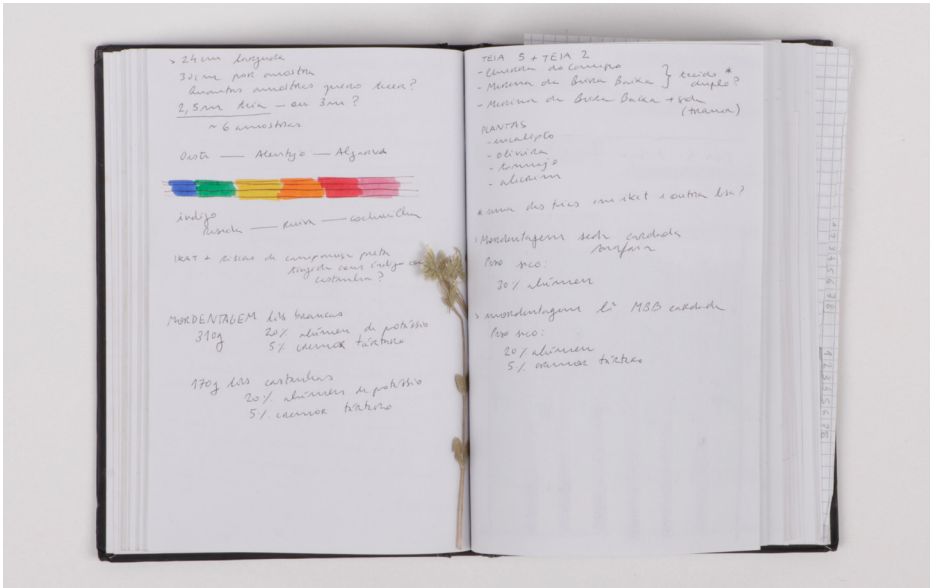 > 24cm largura
30cm por amostra
Quantas amostras quero tecer?
2,5m teia — ou 3m?
~ 6 amostras
Oeste — Alentejo — Algarve
índigo
— Ruiva — cochonilha
IKAT + riscas de campaniça preta
tingida com índigo
castanha?
MORDENTAGEM lãs brancas
310g 20% alúmen de potássio
5% cremor tártaro
170g lãs castanhas
20% alúmen de potássio
5% cremor tártaro
TEIA 5 + TEIA 2
- do Campo
- Merina da Beira Baixa } tecido *
duplo?
- Merina da Beira Baixa + seda
(trama)
PLANTAS
- eucalipto
- oliveira
- tomilho
- alecrim
* uma das teias em ikat e outra lisa?
Mordentagem seda cardada
Peso seco:
30% alúmen
> mordentagem lã MBB cardada
Peso seco:
20% alúmen
5% cremor tártaro
1 2 3 4 5 6 7 8